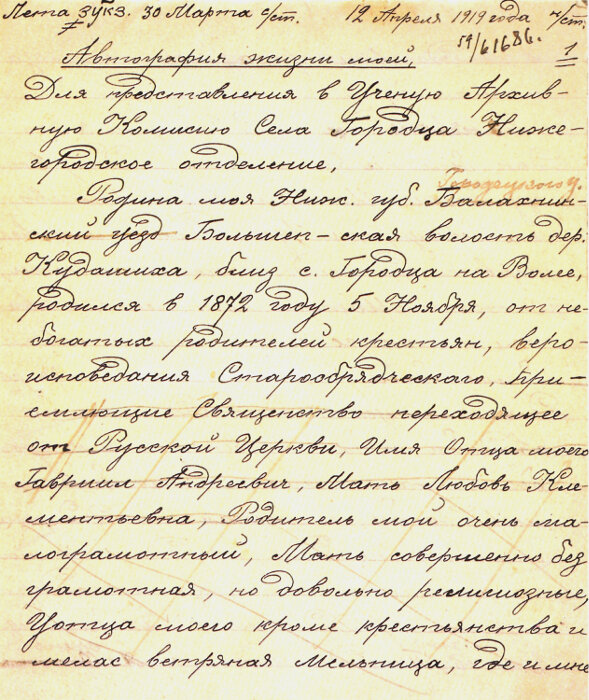 Лета ЗУКЗ. 30 Марта с/ст. 12 Апреля 1919 года н/ст.
54/61686.
1
Автография жизни моей,
Для представления в Ученую Архив-
ную Комисию Села Городца Ниже-
городское отделение,
Городецкого у.
Родина моя Ниж. губ. Балахнин-
ский уезд Большеп-ская волость дер.
Кудашиха, близ с. Городца на Волге,
родился в 1872 году 5 Ноября, от не-
богатых родителей крестьян, веро-
исповедания Старообрядческаго, при-
емлющие Священство переходящее
от Русской Церкви, Имя Отца моего
Гавриил Андреевич, Мать Любовь Кле-
ментьевна, Родитель мой очень ма-
лограмотный, Мать совершенно без
грамотная, но довольно религиозные,
У отца моего кроме крестьянства и
мелас ветряная мельница, где и мне